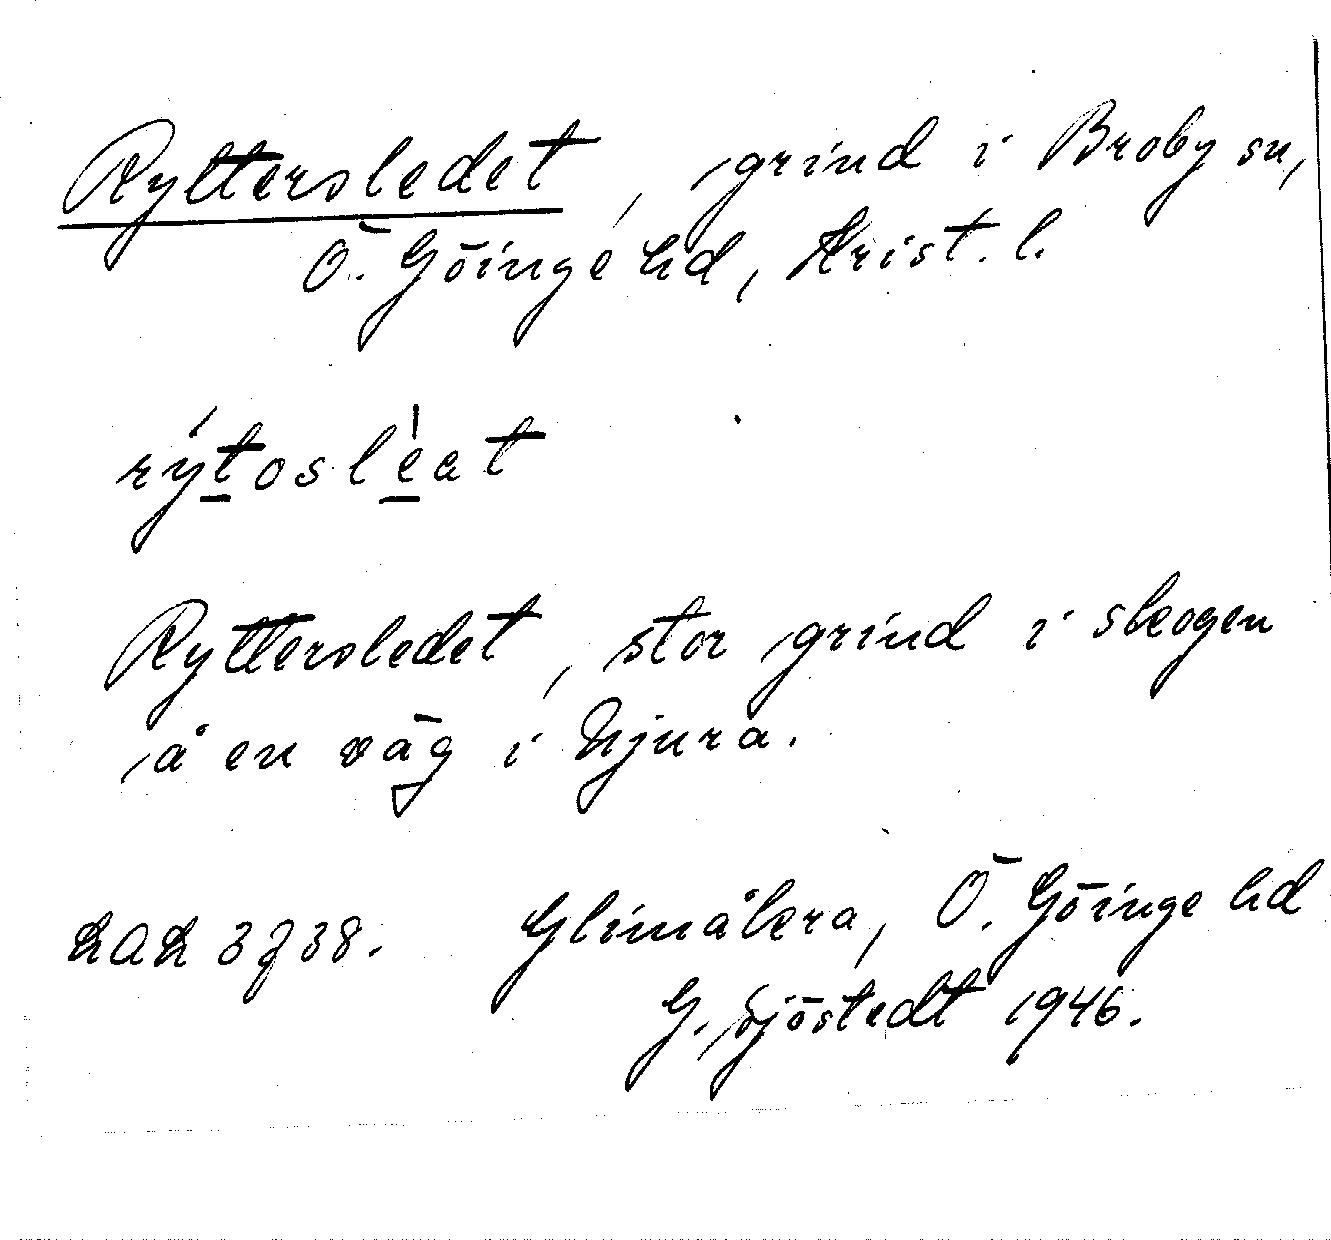 Ryttersledet, grind i Broby sn,
Ö. Göinge hd, Krist. l.
rýtosle̍at
Ryttersledet, stor grind i skogen
å en väg i Njura.
LAL 3738. Glimåkra, Ö. Göinge hd
G. Sjöstedt 1946.